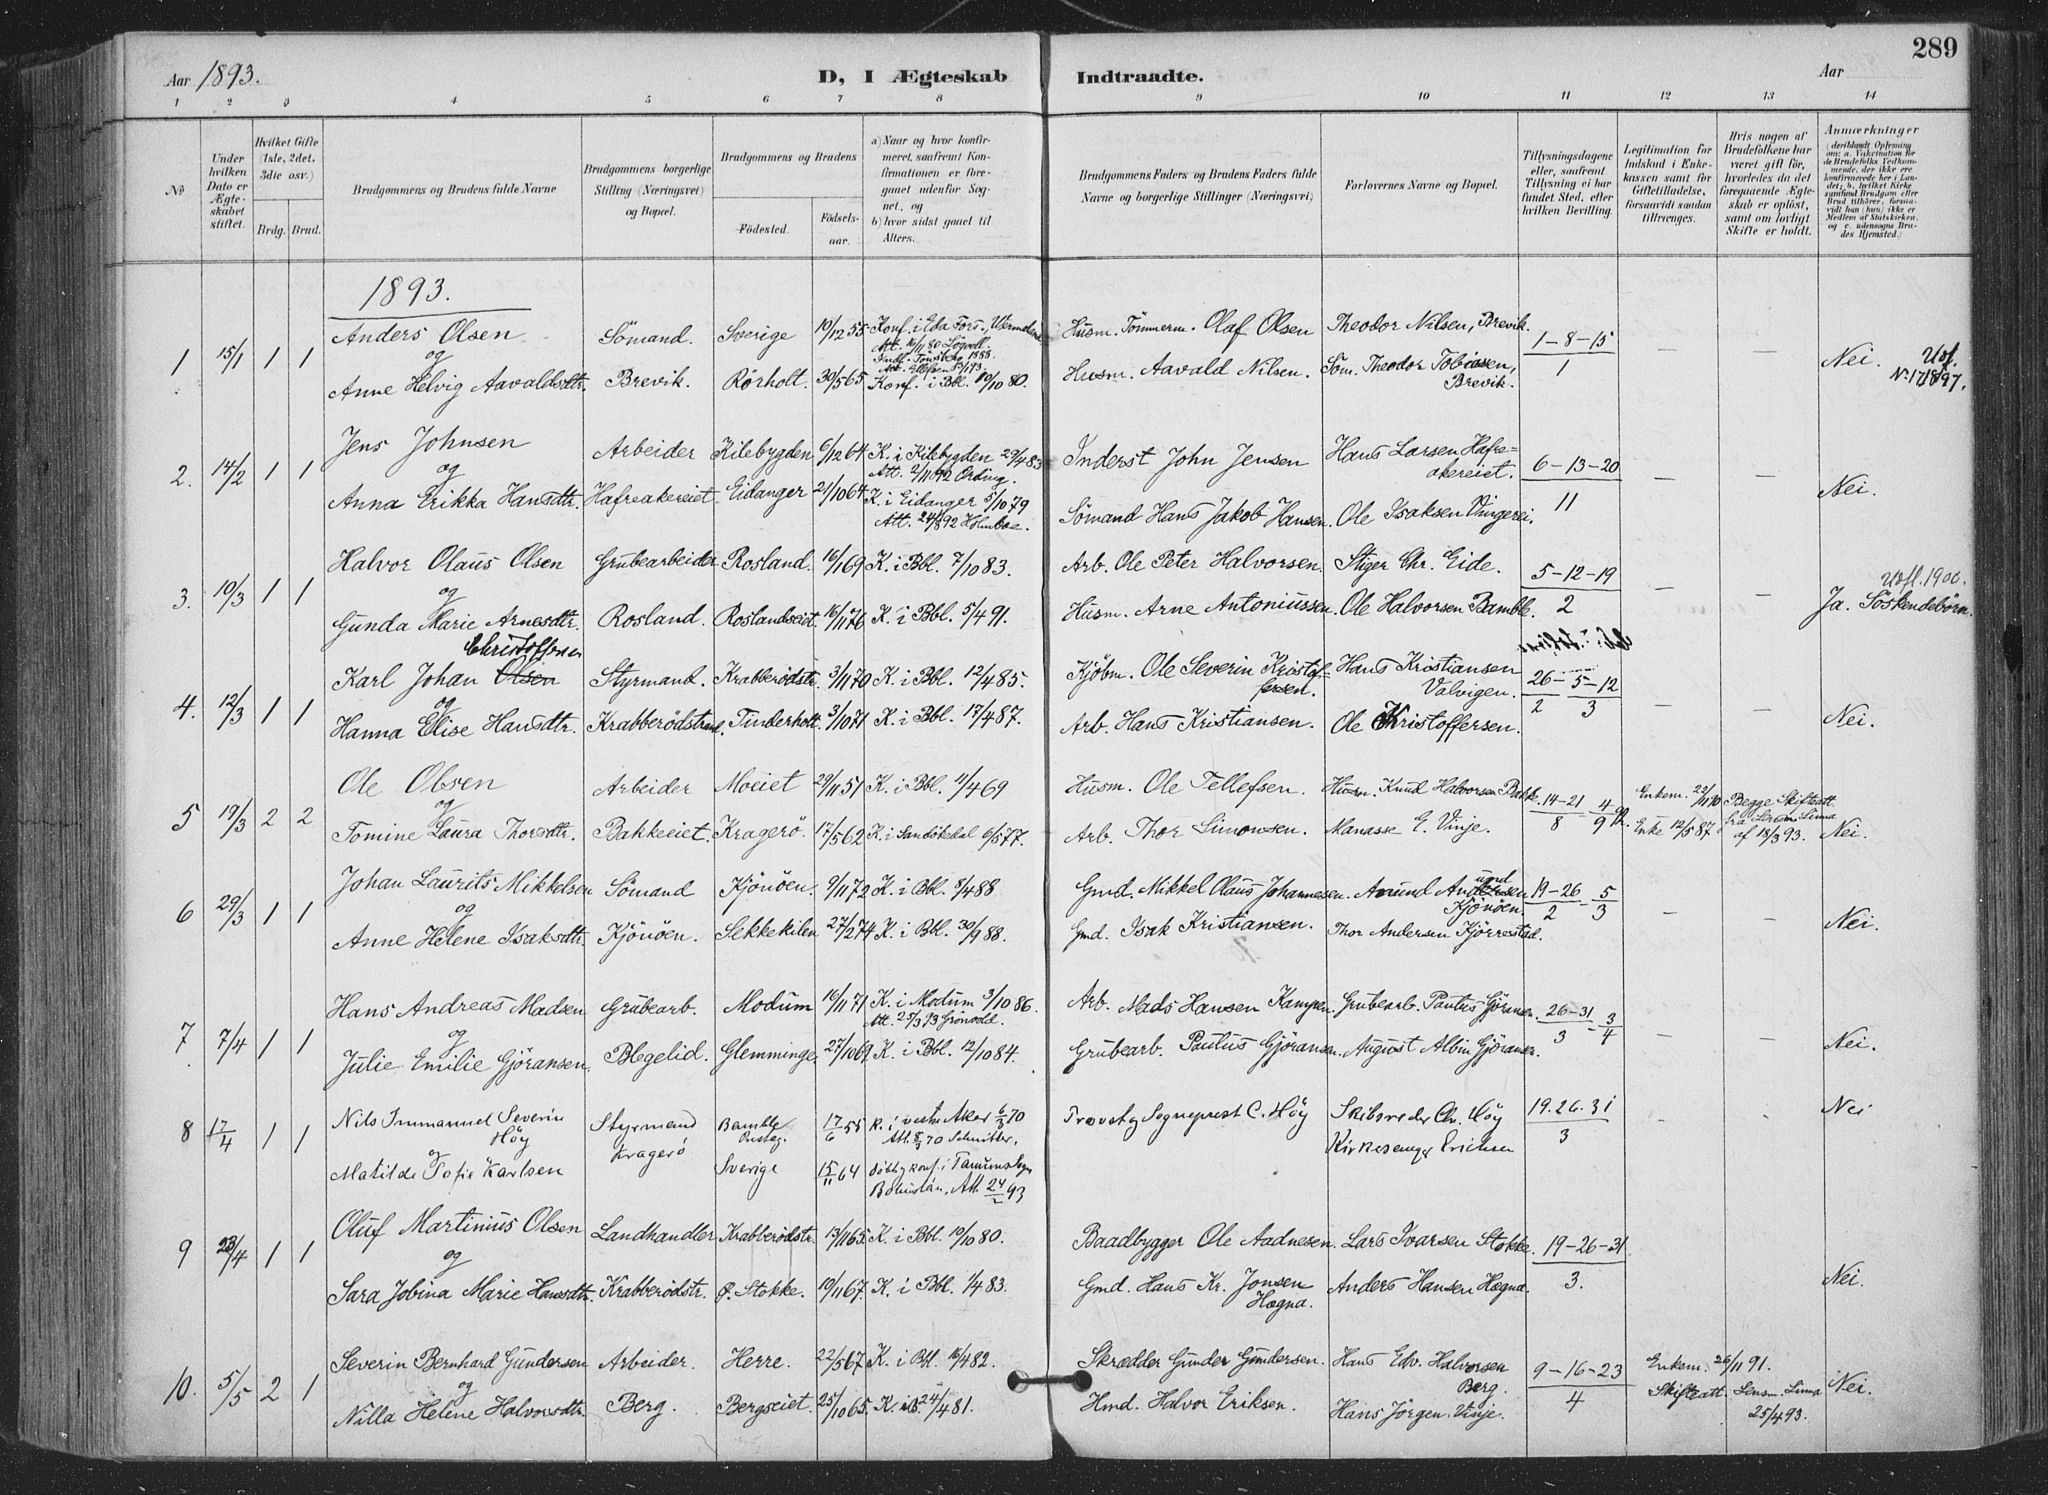 289
Aar 1893.
D, I Ægteskab Indtraadte.
Aar
1 2 3 4 5 6 7 8 9 10 11 12 13 14
No
Under hvilken Dato er Ægteskabet stiftet.
Hvilket Gifte (1ste, 2det, 3die osv.)
Brdg. Brud.
Brudgommens og Brudens fulde Navne
Brudgommens borgerlige Stilling (Næringsvei) og Bopæl.
Brudgommens og Brudens
Födested. Födselsaar.
a) Naar og hvor konfirmeret, saafremt Konfirmationen er foregaaet udenfor Sognet, og
b) hvor sidst gaaet til Alters.
Brudgommens Faders og Brudens Faders fulde Navne og borgerlige Stillinger (Næringsvei)
Forlovernes Navne og Bopæl.
Tillysningsdagene eller, saafremt Tillysning ei har fundet Sted, efter hvilken Bevilling.
Legitimation for Indskud i Enkekassen samt for Giftetilladelse, forsaavidt saadan tiltrænges.
Hvis nogen af Brudefolkene har været gift før, hvorledes da det foregaaende Ægteskab er oplöst, samt om lovligt Skifte er holdt.
Anmærkninger (deriblandt Oplysning om: a. Vaccination for de Brudefolks Vedkommende, der ikke ere konfirmerede her i Landet; b. hvilket Kirkesamfund Brudgom eller Brud tilhörer, forsaavidt han (hun) ikke er Medlem af Statskirken, og c. udensogns Brudes Hjemsted.)
1893.
1 15/1 1 1 Anders Olsen Sömand. Sverige 10/12 55 Konf. i Eda Fors., Husm. Tömmerm. Olaf Olsen Theodor Nilsen, Brevik. 1-8-15 — — Nei.
og
Anne Helvig Aavaldsdtr. Brevik. Rörholt. 30/5 65 Konf. i Bbl. 19/10 80. Husm. Aavald Nilsen. Söm. Theodor Tobiasen, Brevik. 1
2. 14/2 1 1 Jens Johnsen Arbeider Kilebygden 6/12 64 K. i Kilebygden 29/4 83 Att. 2/11 92 Ording. Inderst John Jensen Hans Larsen Hafreakereiet. 6-13-20 — — Nei.
og
Anna Erikka Hansdtr. Hafreakereiet Eidanger 21/10 64 K. i Eidanger 5/10 79 Sömand Hans Jakob Hansen. Ole Isaksen Vingerei. 11
3. 19/3 1 1 Halvor Olaus Olsen Grubearbeider Rosland. 16/1 69 K. i Bbl. 7/10 83. Arb. Ole Peter Halvorsen. Stiger Chr. Eide. 5-12-19 — — Udfl. 1900.
og
Gunda Marie Arnesdtr. Rosland. Roslandseiet 16/11 76 K. i Bbl. 5/4 91. Husm. Arne Antoniussen. Ole Halvorsen Bamble. 2 Ja. Söskendebörn.
Christoffersen
4. 12/3 1 1 Karl Johan Olsen Styrmand. Krabberödstr. 3/11 70 K. i Bbl. 12/4 85. Kjöbm. Ole Severin Kristoffersen. Hans Kristiansen Valvigen. 26-5-12 — — Nei.
og
Hanna Elise Hansdtr. Krabberödstrand. Tinderholt 3/10 71 K. i Bbl. 17/4 87. Arb. Hans Kristiansen. Ole Kristoffersen. 2 3
5 19/3 2 2 Ole Olsen Arbeider Moeiet 29/11 51 K. i Bbl. 11/4 69 Husm. Ole Tellefsen. Husm Knud Halvorsen Bakke. 14-21-4 Enkem. 23/11 90 Begge Skifteatt.
og
Tomine Laura Thorsdtr. Bakkeeiet. Kragerö. 17/5 62 K. i Sandökedal 6/5 77. Arb. Thor Simonsen. Manasse E. Vinje. 8 9 Enke 12/5 87. fra Lensm. Linna af 18/3 93. Nei.
6 29/3 1 1 Johan Laurits Mikkelsen Sömand Kjönöen. 9/11 72 K. i Bbl. 8/4 88 Gmd. Mikkel Olaus Johannesen. Amund Andersen Kjönöen. 19-26-5 — — Nei.
og
Anne Helene Isaksdtr. Kjönöen. Sekkekilen 27/2 74 K. i Bbl. 30/9 88. Gmd. Isak Kristiansen. Thor Andersen Kjörrestad. 2 3
7 7/4 1 1 Hans Andreas Madsen Grubearb. Modum 16/11 71 K. i Modum 3/10 86. Att. 25/3 93 Grönvold. Arb. Mads Hansen Kampen. Grubearb. Paulus Gjöransen. 26-31-3 — — Nei.
og
Julie Emilie Gjöransen. Blegelid. Glemminge 27/10 69 K. i Bbl. 12/10 84. Grubearb. Paulus Gjöransen. August Albin Gjöransen. 3 4
8 17/4 1 1 Nils Immanuel Severin Höy Styrmand Kragerö Bamble 17/6 55 K. i vestre Aker 6/3 70 Att. 8/3 70 Schnitler. Provst og Sognepræst C. Höy Skibsreder Chr. Höy 19.26.31 — Nei
og
Matilde Sofie Karlsen Sverige 15/11 64 Döbt og konf. i Tanums Sogn Bohuslän, Att. 24/2 93 Kirkesanger Erichsen 3
9 23/4 1 1 Oluf Martinius Olsen Landhandler Krabberödstr. 13/11 65 K. i Bbl. 19/10 80. Baadbygger Ole Aadnesen. Lars Ivarsen Stokke. 19-26-31
og
Sara Jobina Marie Hansdtr. Krabberödstr. Ø. Stokke. 19/11 67. K. i Bbl. 1/4 83. Gmd. Hans Kr. Jonsen Hægna. Anders Hansen Hægna. 3. Nei.
10. 5/5 2 1 Severin Bernhard Gundersen Arbeider. Herre. 22/5 67 K. i Bbl. 16/4 82. Skrædder Gunder Gundersen. Hans Edv. Halvorsen Berg. 9-16-23 Enkem. 26/11 91.
og
Nilla Helene Halvorsdtr. Berg. Bergseiet. 25/10 65. K. i B. 24/4 81. Hmd. Halvor Eriksen. Hans Jörgen. Vinje. 4 Skifteatt. Lensm. Linna 25/4 93. Nei.